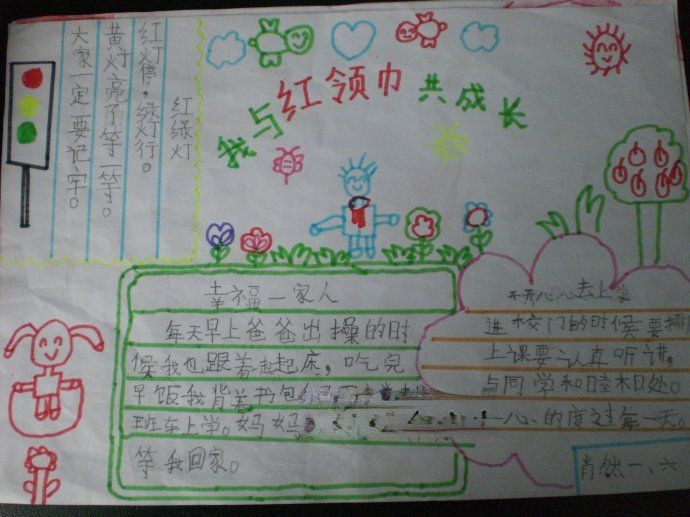 我与红领巾共成长
红绿灯
红灯停,绿灯行。
黄灯亮了等一等。
大家一定要记牢。
幸福一家人
每天早上爸爸出操的时
候我也跟着起起床,吃完
早饭我背着书包
班车上学。妈妈
等我回家。
开开心心去上学
进校门的时候要排
上课要认真听讲,
与同学和睦相处。
心的度过每一天。
肖然一、六